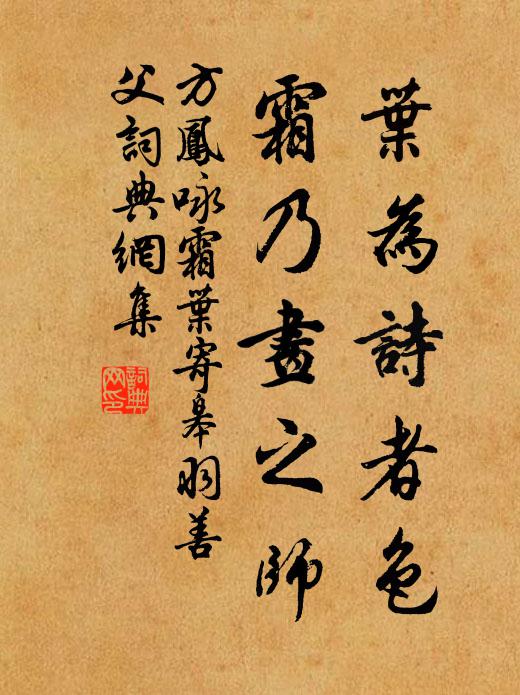 葉為詩者色
霜乃畫之師
方鳳咏霜葉寄皋羽善
父詞典網集
詞典網印